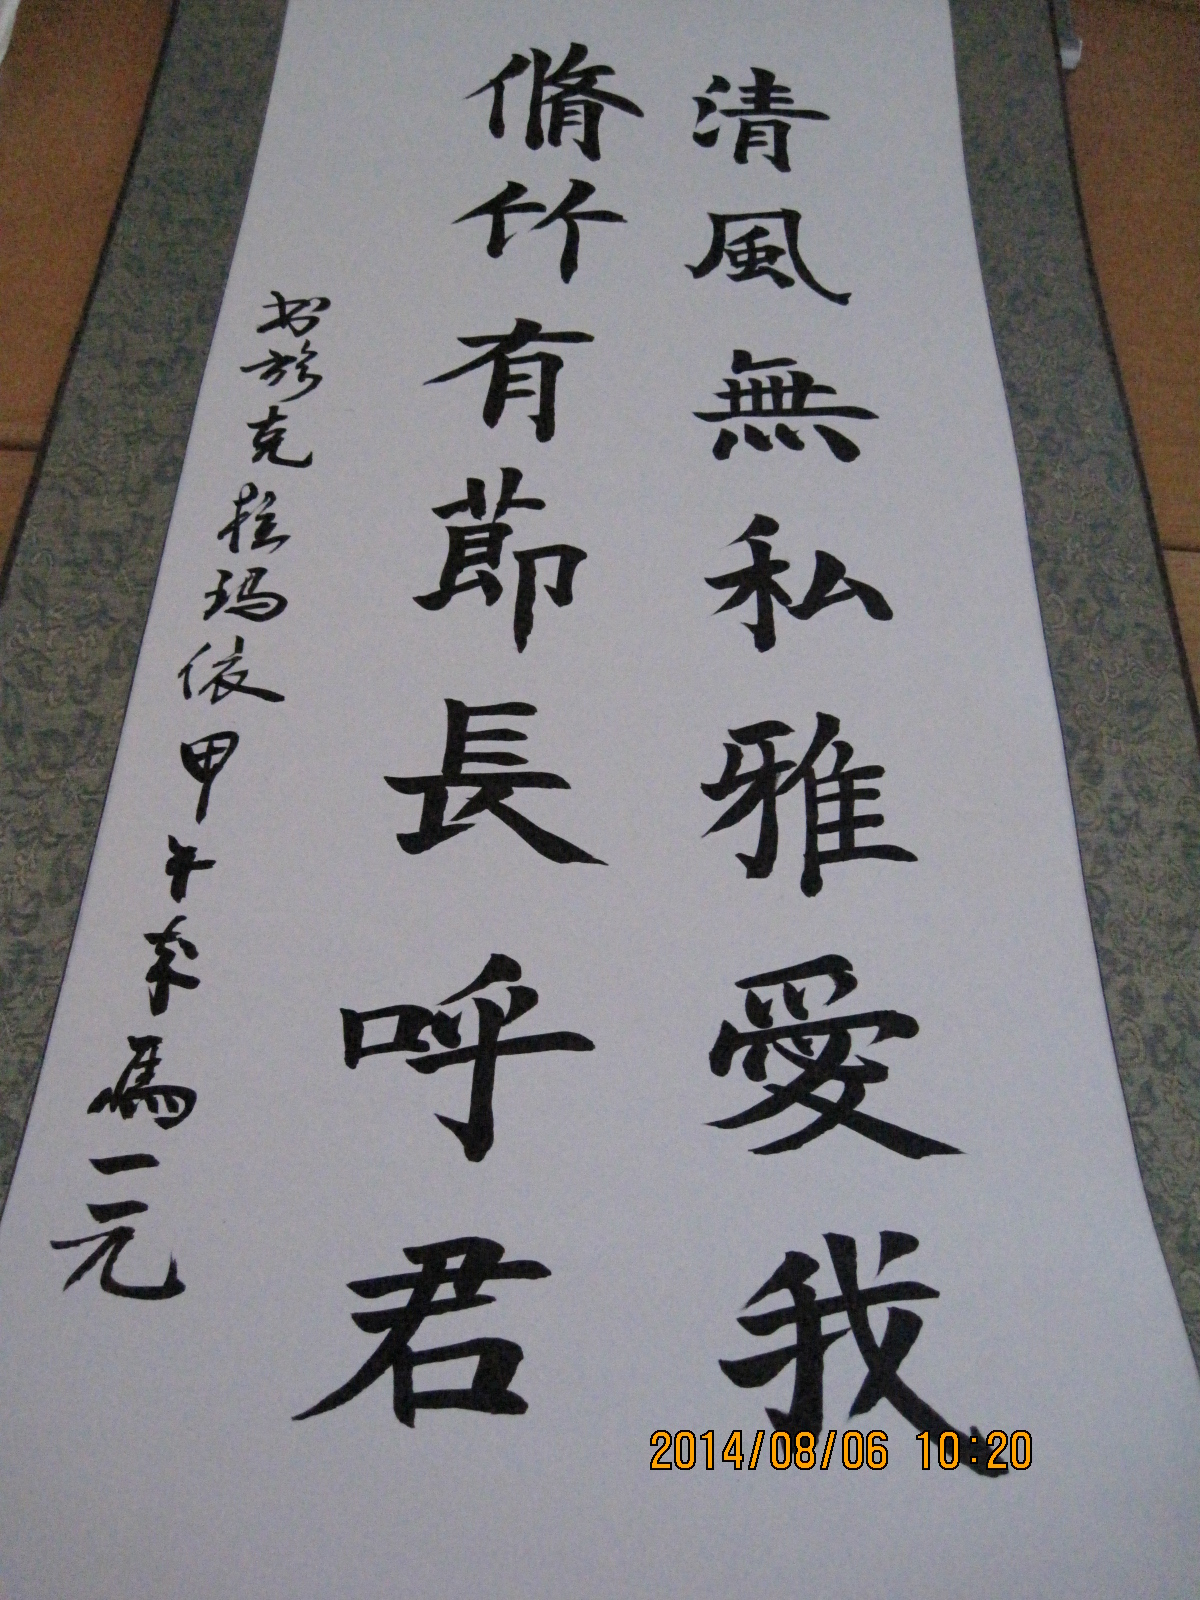 清風無私雅愛我
脩竹有節長呼君
书於克拉玛依甲午年馬一元
2014/08/06 10:20